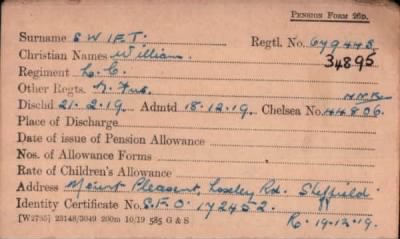 PENSION FORM 26D.
Surname SWIFT. Regtl. No. 679448
Christian Names William. 34895
Regiment L.C.
Other Regts. N. Fus.
Dischd 21.2.19. Admtd 18.12.19. Chelsea No. 44806.
Place of Discharge
Date of issue of Pension Allowance
Nos. of Allowance Forms
Rate of Children's Allowance
Address Mount Pleasant, Loxley Rd. Sheffield
Identity Certificate No. S.F.O. 172452.
[W2735] 23148/3049 200m 10/19 585 G & S R. 19.12.19.